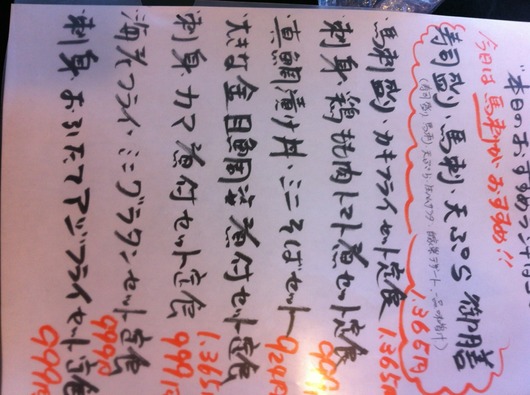 本日のおすすめランチ
今日は馬刺がおすすめ!!
寿司盛り、馬刺、天ぷら御膳
1.365円
馬刺盛り・カキフライセット定食 1.365円
刺身・鶏肉トマト煮セット定食 999円
真鯛漬け丼・ミニそばセット 924円
大きな金目鯛煮付セット定食 1.365円
刺身・カマ煮付セット定食 999円
海老フライ・ミニグラタンセット定食 999円
刺身・アジフライセット定食 999円